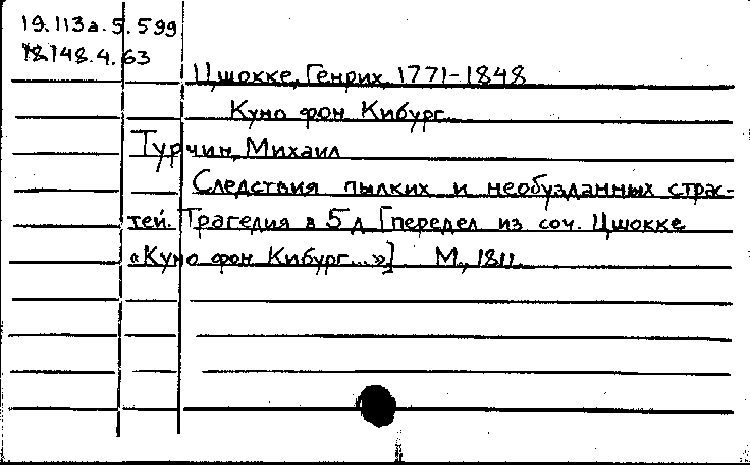 19.113а.5.599
18.148.4.63
Цшокке, Генрих, 1771-1848
Куно фон Кибург...
Турчин, Михаил
Следствия пылких и необузданных страс-
тей. Трагедия в 5 д. [передел. из соч. Цшокке
«Куно фон Кибург...»] М., 1811.